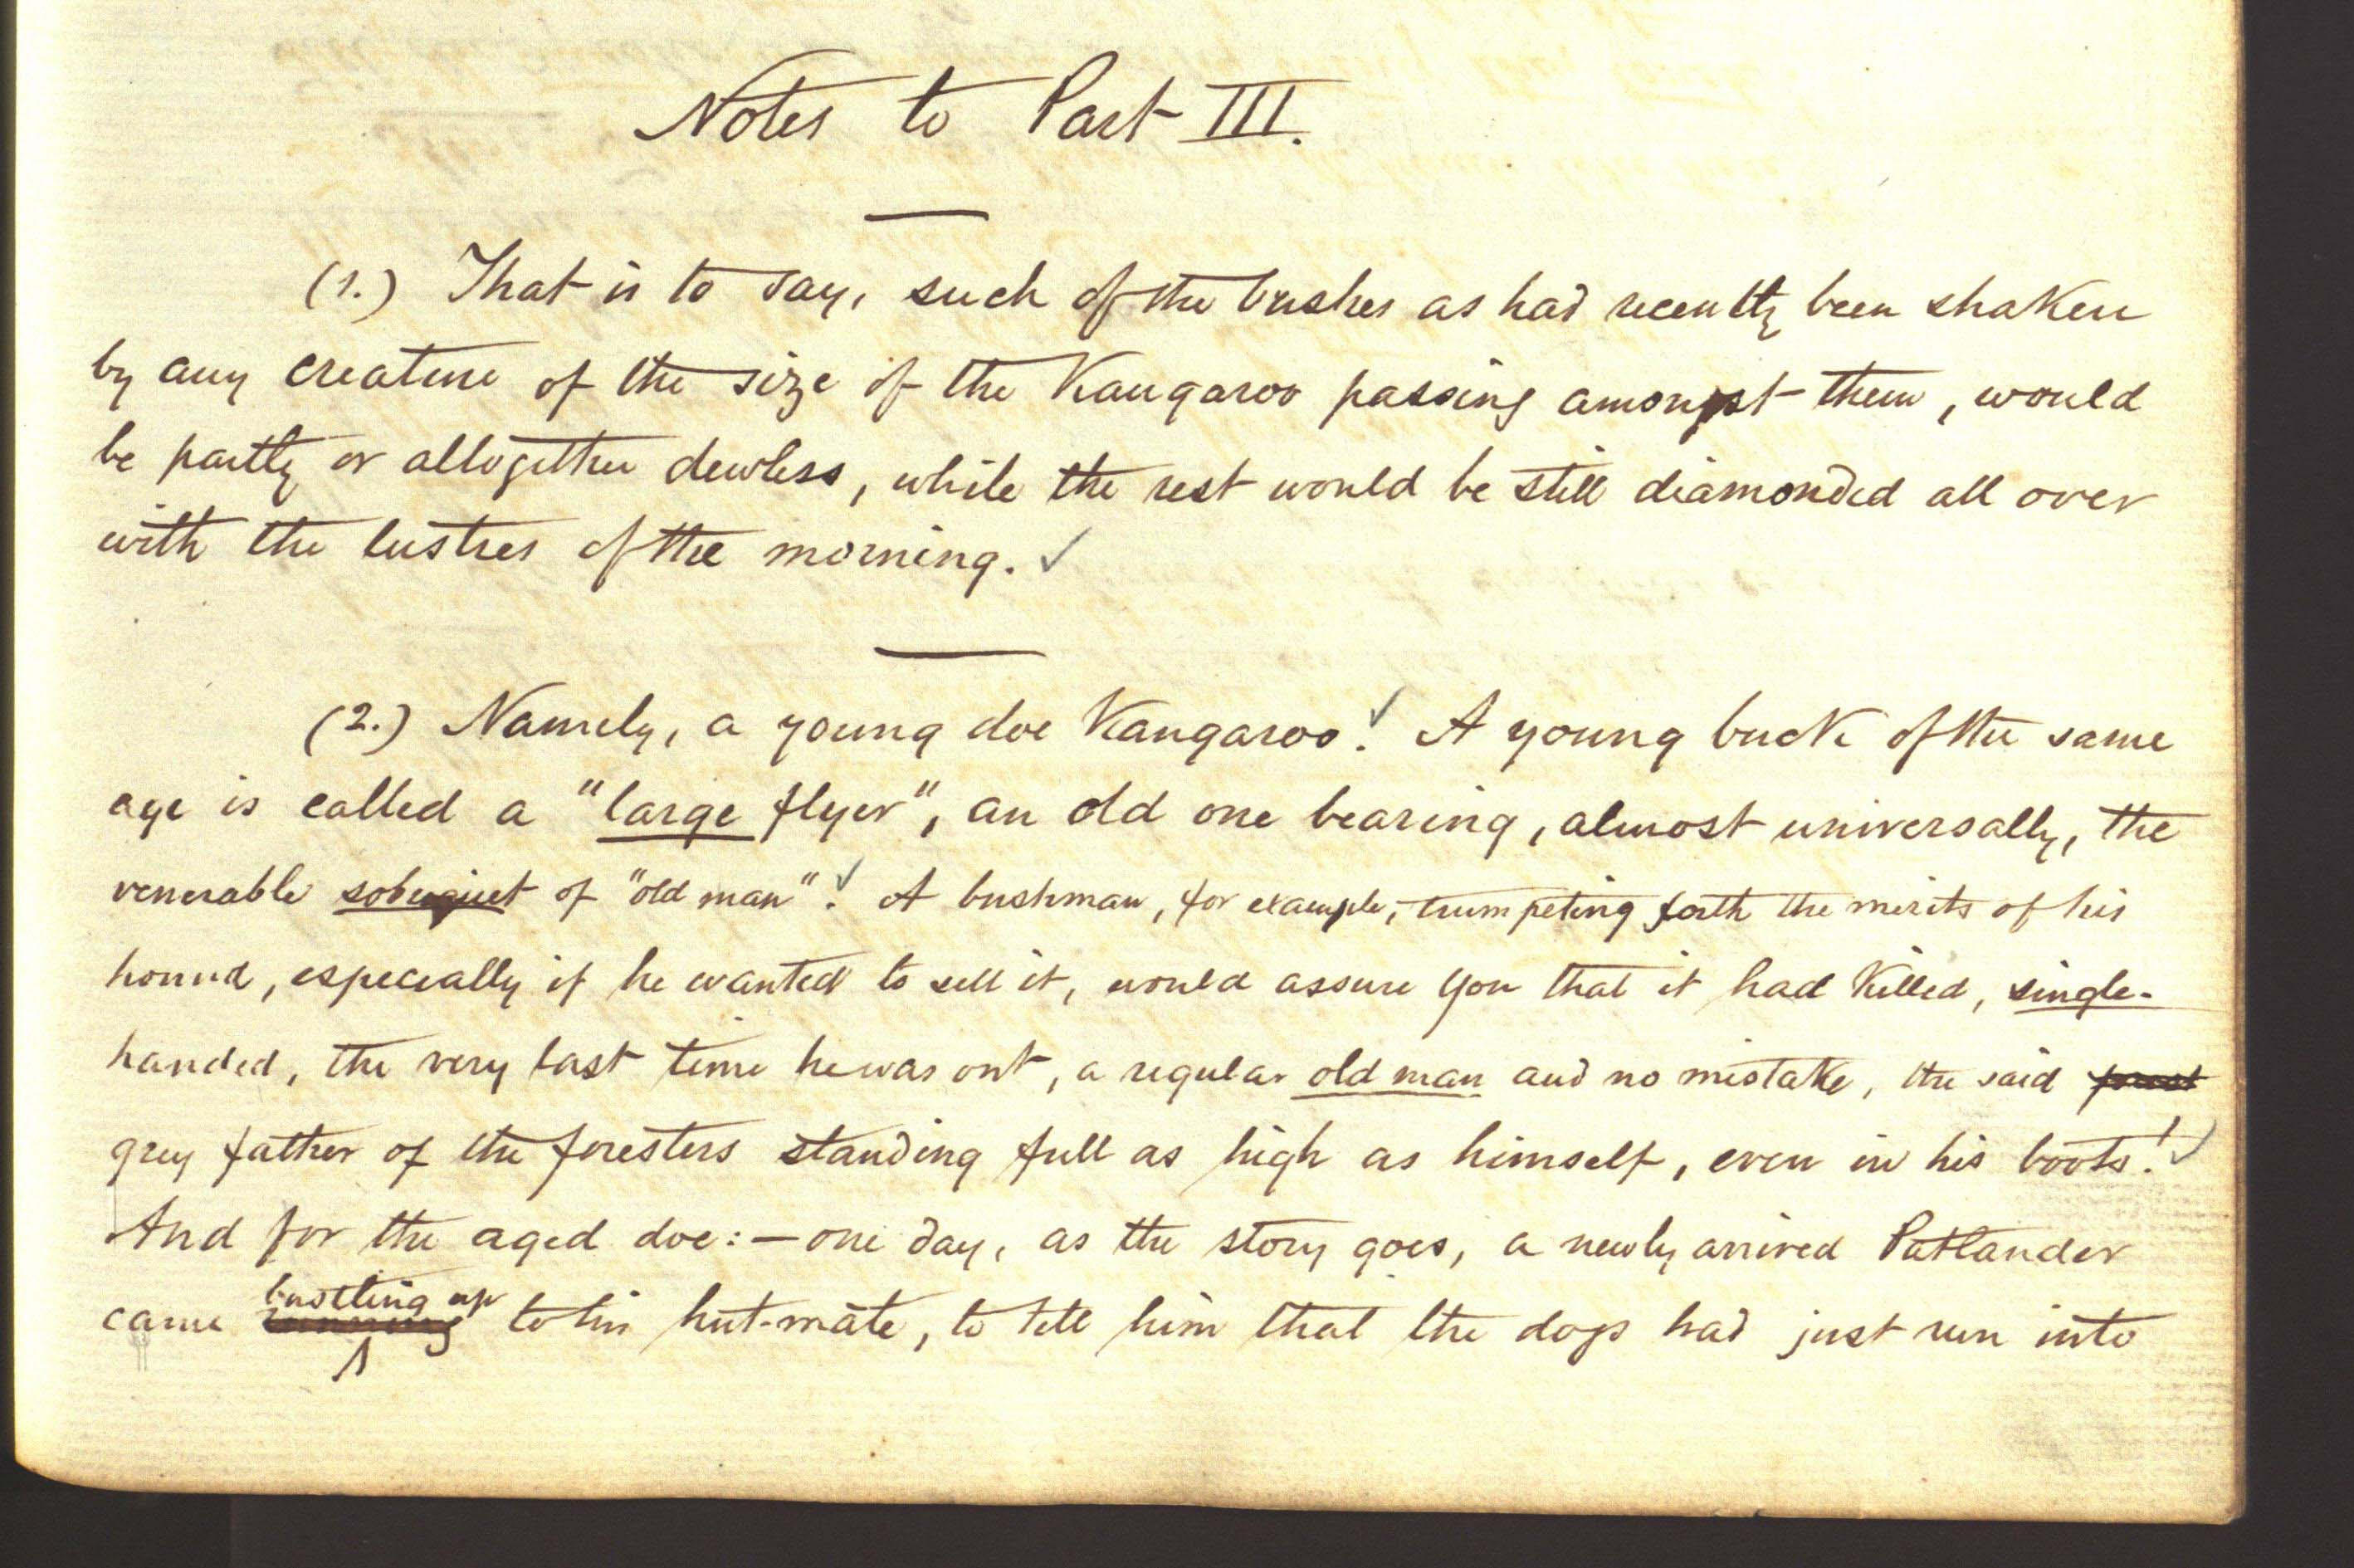 Notes to Part III.
(1.) That is to say, such of the bushes as had recently been shaken
by any creature of the size of the Kangaroo passing amongst them, would
be partly or altogether dewless, while the rest would be still diamonded all over
with the lustres of the morning. ✓
(2.) Namely, a young doe Kangaroo! ✓ A young buck of the same
age is called a "large flyer", an old one bearing, almost universally, the
venerable sobuquet of "old man"! ✓ A bushman, for example, trumpeting forth the merits of his
hound, especially if he wanted to sell it, would assure you that it had killed, single-
handed, the very last time he was out, a regular old man and no mistake, the said
grey father of the foresters standing full as high as himself, even in his boots! ✓
And for the aged doe:— one day, as the story goes, a newly arrived Patlander
came running bustling up to his hut-mate, to tell him that the dogs had just run into